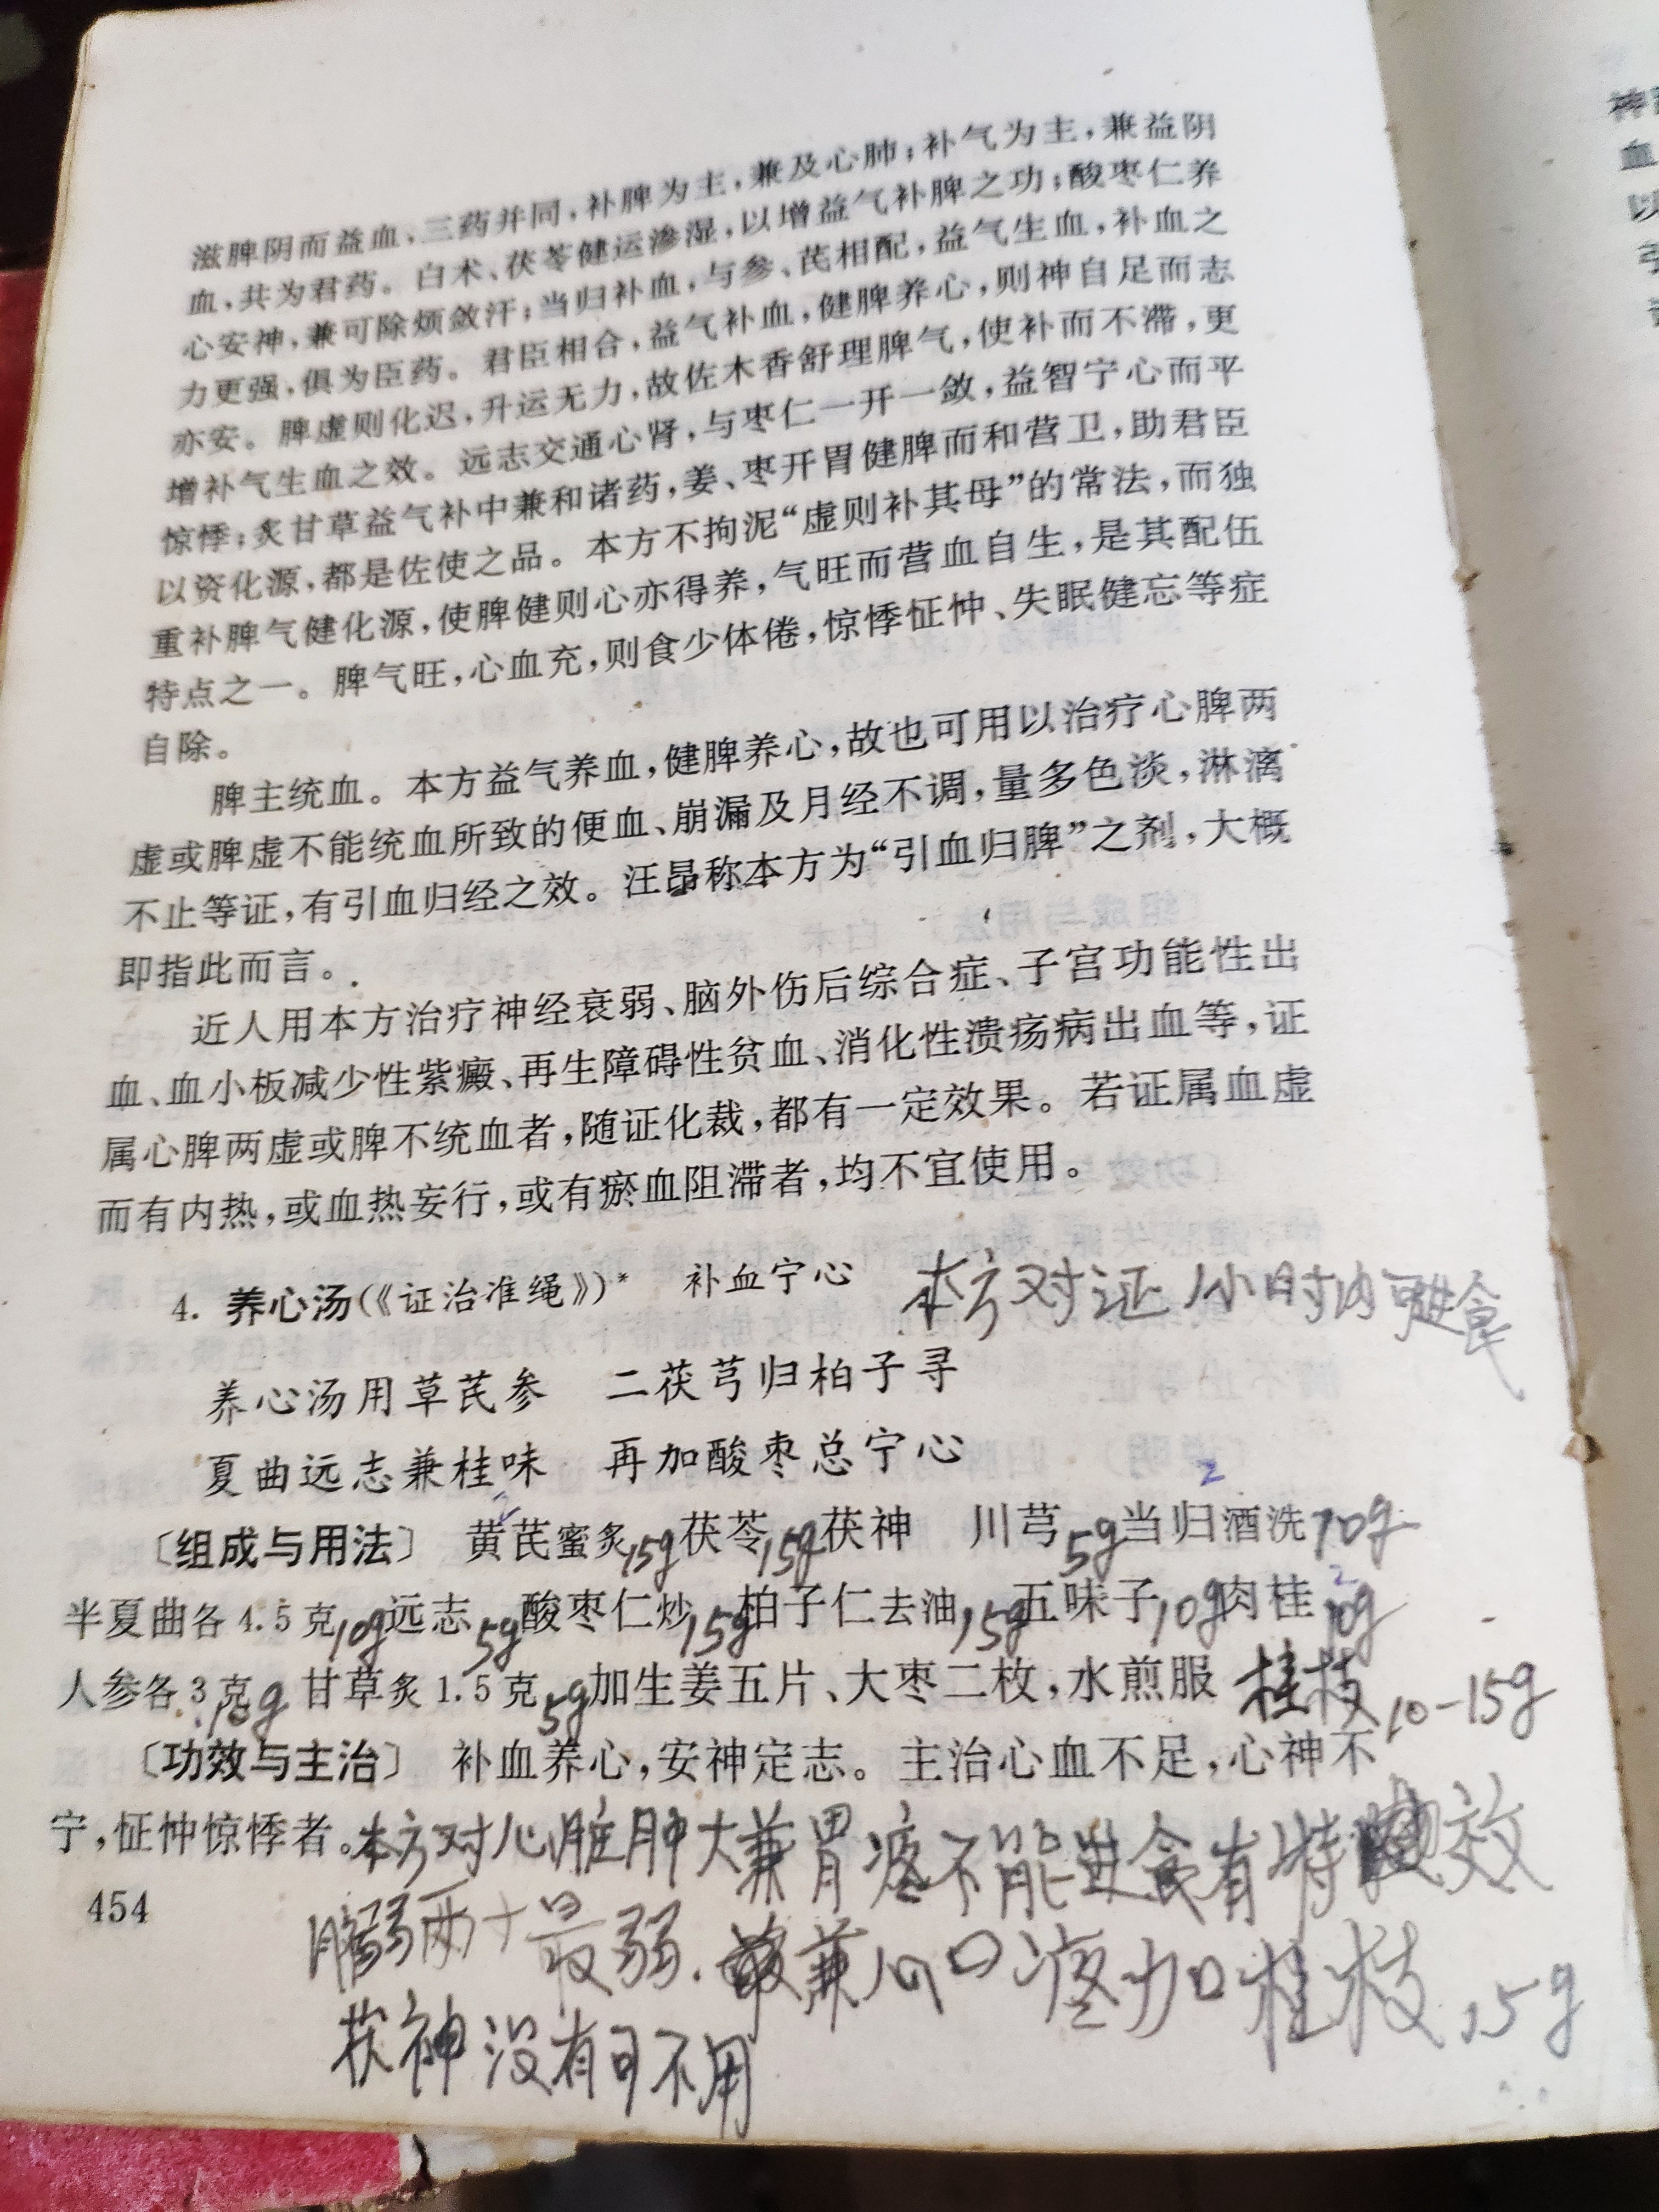 滋脾阴而益血，三药并同，补脾为主，兼及心肺；补气为主，兼益阴
血，共为君药。白术、茯苓健运渗湿，以增益气补脾之功；酸枣仁养
心安神，兼可除烦敛汗；当归补血，与参、芪相配，益气生血，补血之
力更强，俱为臣药。君臣相合，益气补血，健脾养心，则神自足而志
亦安。脾虚则化迟，升运无力，故佐木香舒理脾气，使补而不滞，更
增补气生血之效。远志交通心肾，与枣仁一开一敛，益智宁心而平
惊悸；炙甘草益气补中兼和诸药，姜、枣开胃健脾而和营卫，助君臣
以资化源，都是佐使之品。本方不拘泥“虚则补其母”的常法，而独
重补脾气健化源，使脾健则心亦得养，气旺而营血自生，是其配伍
特点之一。脾气旺，心血充，则食少体倦，惊悸怔忡、失眠健忘等症
自除。
脾主统血。本方益气养血，健脾养心，故也可用以治疗心脾两
虚或脾虚不能统血所致的便血、崩漏及月经不调，量多色淡，淋漓
不止等证，有引血归经之效。汪昂称本方为“引血归脾”之剂，大概
即指此而言。
近人用本方治疗神经衰弱、脑外伤后综合症、子宫功能性出
血、血小板减少性紫癜、再生障碍性贫血、消化性溃疡病出血等，证
属心脾两虚或脾不统血者，随证化裁，都有一定效果。若证属血虚
而有内热，或血热妄行，或有瘀血阻滞者，均不宜使用。
4. 养心汤(《证治准绳》)* 补血宁心 本方对证1小时内可进食
养心汤用草芪参 二茯芎归柏子寻
夏曲远志兼桂味 再加酸枣总宁心
2
〔组成与用法〕 黄芪蜜炙15g 茯苓15g 茯神 川芎5g 当归酒洗10g
半夏曲各4.5克10g 远志5g 酸枣仁炒15g 柏子仁去油15g 五味子10g 肉桂10g
人参各3克10g 甘草炙1.5克5g 加生姜五片、大枣二枚，水煎服 桂枝10-15g
〔功效与主治〕 补血养心，安神定志。主治心血不足，心神不
宁，怔忡惊悸者。本方对心脏肿大兼胃疼不能进食有特效
454
两寸最弱. 兼心口疼加桂枝15g
茯神没有可不用